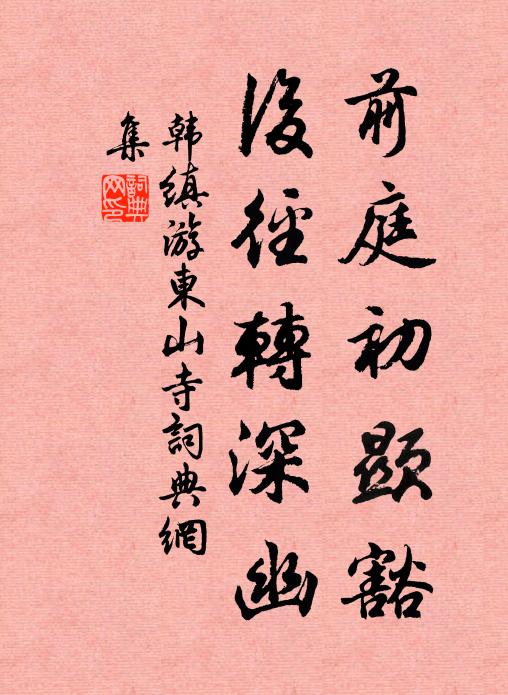 前庭初顯豁
後徑轉深幽
韩縝游東山寺詞典網
集
詞典
网印